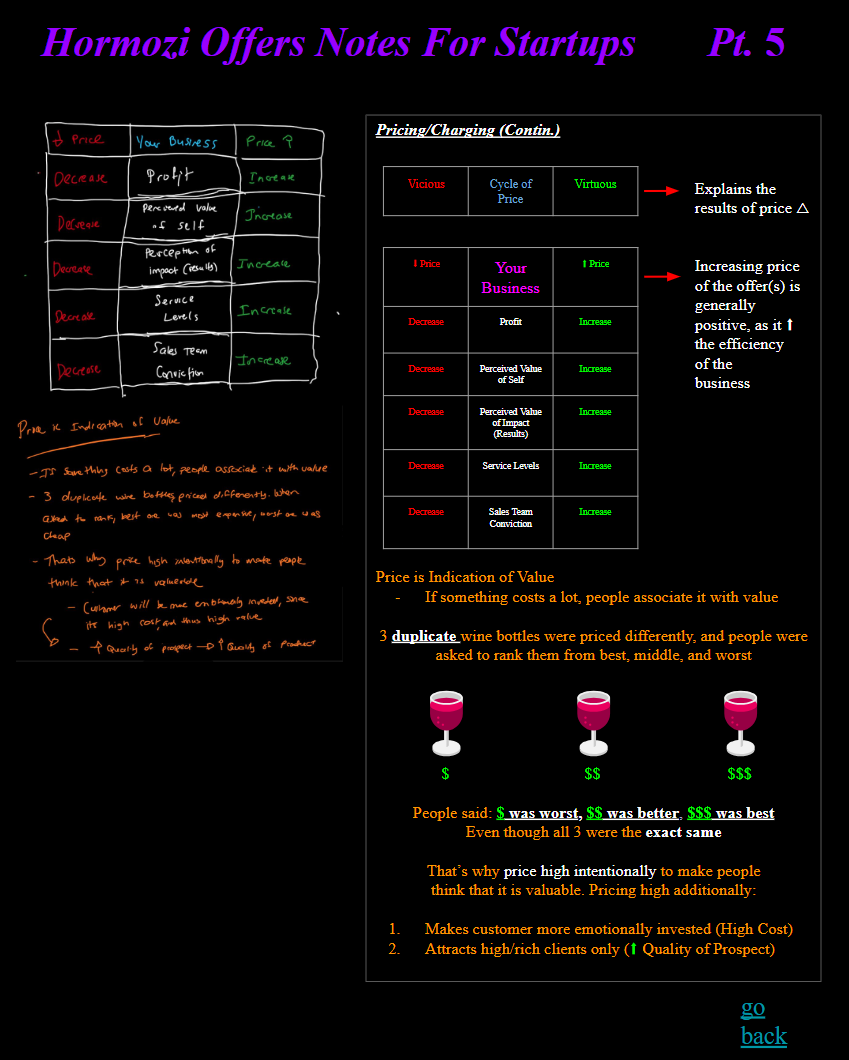 Hormozi Offers Notes For Startups Pt. 5
↓ Price Your Business Price ↑
Decrease Profit Increase
Decrease Perceived value of self Increase
Decrease Perception of impact (results) Increase
Decrease Service Levels Increase
Decrease Sales Team Conviction Increase
Price is Indication of Value
- If something costs a lot, people associate it with value
- 3 duplicate wine bottles priced differently. When
asked to rank, best one was most expensive, worst one was
cheap
- Thats why price high intentionally to make people
think that it is valuable
- Customer will be more emotionally invested, since
its high cost, and thus high value
- ↑ Quality of prospect → ↑ Quality of Product
Pricing/Charging (Contin.)
Vicious Cycle of Price Virtuous
Explains the
results of price △
⬇ Price Your Business ⬆ Price
Decrease Profit Increase
Decrease Perceived Value of Self Increase
Decrease Perceived Value of Impact (Results) Increase
Decrease Service Levels Increase
Decrease Sales Team Conviction Increase
Increasing price
of the offer(s) is
generally
positive, as it ⬆
the efficiency
of the
business
Price is Indication of Value
- If something costs a lot, people associate it with value
3 duplicate wine bottles were priced differently, and people were
asked to rank them from best, middle, and worst
$ $$ $$$
People said: $ was worst, $$ was better, $$$ was best
Even though all 3 were the exact same
That's why price high intentionally to make people
think that it is valuable. Pricing high additionally:
1. Makes customer more emotionally invested (High Cost)
2. Attracts high/rich clients only (⬆ Quality of Prospect)
go
back